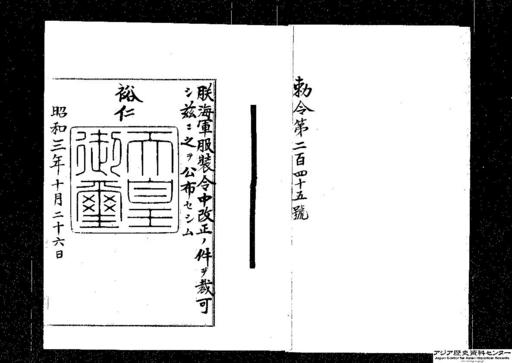 勅令第二百四十五號
朕海軍服裝令中改正ノ件ヲ裁可
シ茲ニ之ヲ公布セシム
裕仁
天皇御璽
昭和三年十月二十六日
アジア歴史資料センター
Japan Center for Asian Historical Records